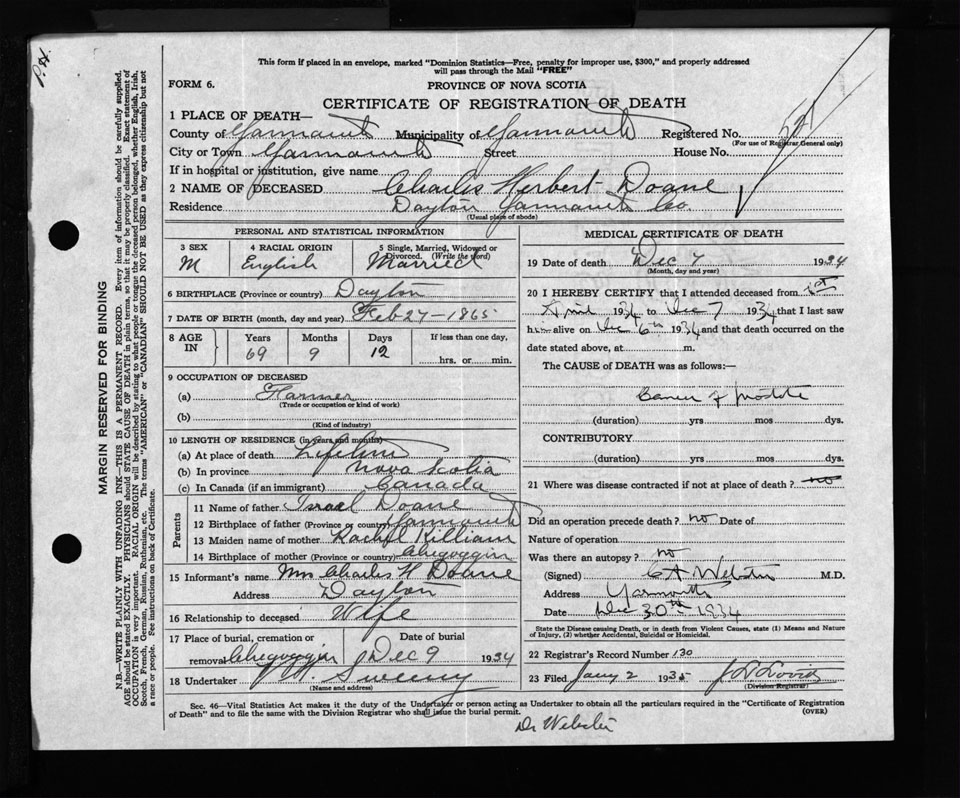 This form if placed in an envelope, marked "Dominion Statistics—Free, penalty for improper use, $300," and properly addressed
will pass through the Mail "FREE"
FORM 6.
PROVINCE OF NOVA SCOTIA
CERTIFICATE OF REGISTRATION OF DEATH
1 PLACE OF DEATH—
County of Yarmouth Municipality of Yarmouth Registered No.
(For use of Registrar General only)
City or Town Yarmouth Street House No.
If in hospital or institution, give name
2 NAME OF DECEASED Charles Herbert Doane
Residence Dayton Yarmouth Co.
(Usual place of abode)
PERSONAL AND STATISTICAL INFORMATION
3 SEX 4 RACIAL ORIGIN 5 Single, Married, Widowed or
Divorced. (Write the word)
M English Married
6 BIRTHPLACE (Province or country) Dayton
7 DATE OF BIRTH (month, day and year) Feb 27-1865
8 AGE IN Years Months Days If less than one day,
69 9 12 hrs. or min.
9 OCCUPATION OF DECEASED
(a) Farmer
(Trade or occupation or kind of work)
(b)
(Kind of industry)
10 LENGTH OF RESIDENCE (in years and months)
(a) At place of death Lifetime
(b) In province Nova Scotia
(c) In Canada (if an immigrant) Canada
Parents
11 Name of father Israel Doane
12 Birthplace of father (Province or country) Yarmouth
13 Maiden name of mother Rachel Killiam
14 Birthplace of mother (Province or country) Chegoggin
15 Informant's name Mrs Charles H Doane
Address Dayton
16 Relationship to deceased Wife
17 Place of burial, cremation or Date of burial
removal Chegoggin Dec 9 1934
18 Undertaker Sweeny
(Name and address)
MEDICAL CERTIFICATE OF DEATH
19 Date of death Dec 7 1934
(Month, day and year)
20 I HEREBY CERTIFY that I attended deceased from 1st
April 1934 to Dec 7 1934 that I last saw
him alive on Dec 6th 1934 and that death occurred on the
date stated above, at m.
The CAUSE OF DEATH was as follows:—
(duration) yrs mos dys.
CONTRIBUTORY
(duration) yrs mos dys.
21 Where was disease contracted if not at place of death? no
Did an operation precede death? no Date of
Nature of operation
Was there an autopsy? no
(Signed) C A Webster M.D.
Address Yarmouth
Date Dec 30th 1934
State the Disease causing Death, or in death from Violent Causes, state (1) Means and Nature
of Injury, (2) whether Accidental, Suicidal or Homicidal.
22 Registrar's Record Number 130
23 Filed Jany 2 1935
(Division Registrar)
Sec. 46—Vital Statistics Act makes it the duty of the Undertaker or person acting as Undertaker to obtain all the particulars required in the "Certificate of Registration
of Death" and to file the same with the Division Registrar who shall issue the burial permit. (OVER)
Dr Webster
MARGIN RESERVED FOR BINDING
N.B.—WRITE PLAINLY WITH UNFADING INK—THIS IS A PERMANENT RECORD. Every item of information should be carefully supplied.
AGE should be stated EXACTLY. PHYSICIANS should STATE CAUSE OF DEATH in plain terms, so that it may be properly classified. Exact statement of
OCCUPATION is very important. RACIAL ORIGIN will be described by stating to what people or tongue the deceased person belonged, whether English, Irish,
Scotch, French, German, Russian, Ruthenian, etc. The terms "AMERICAN" or "CANADIAN" SHOULD NOT BE USED as they express citizenship but not
a race or people. See instructions on back of Certificate.